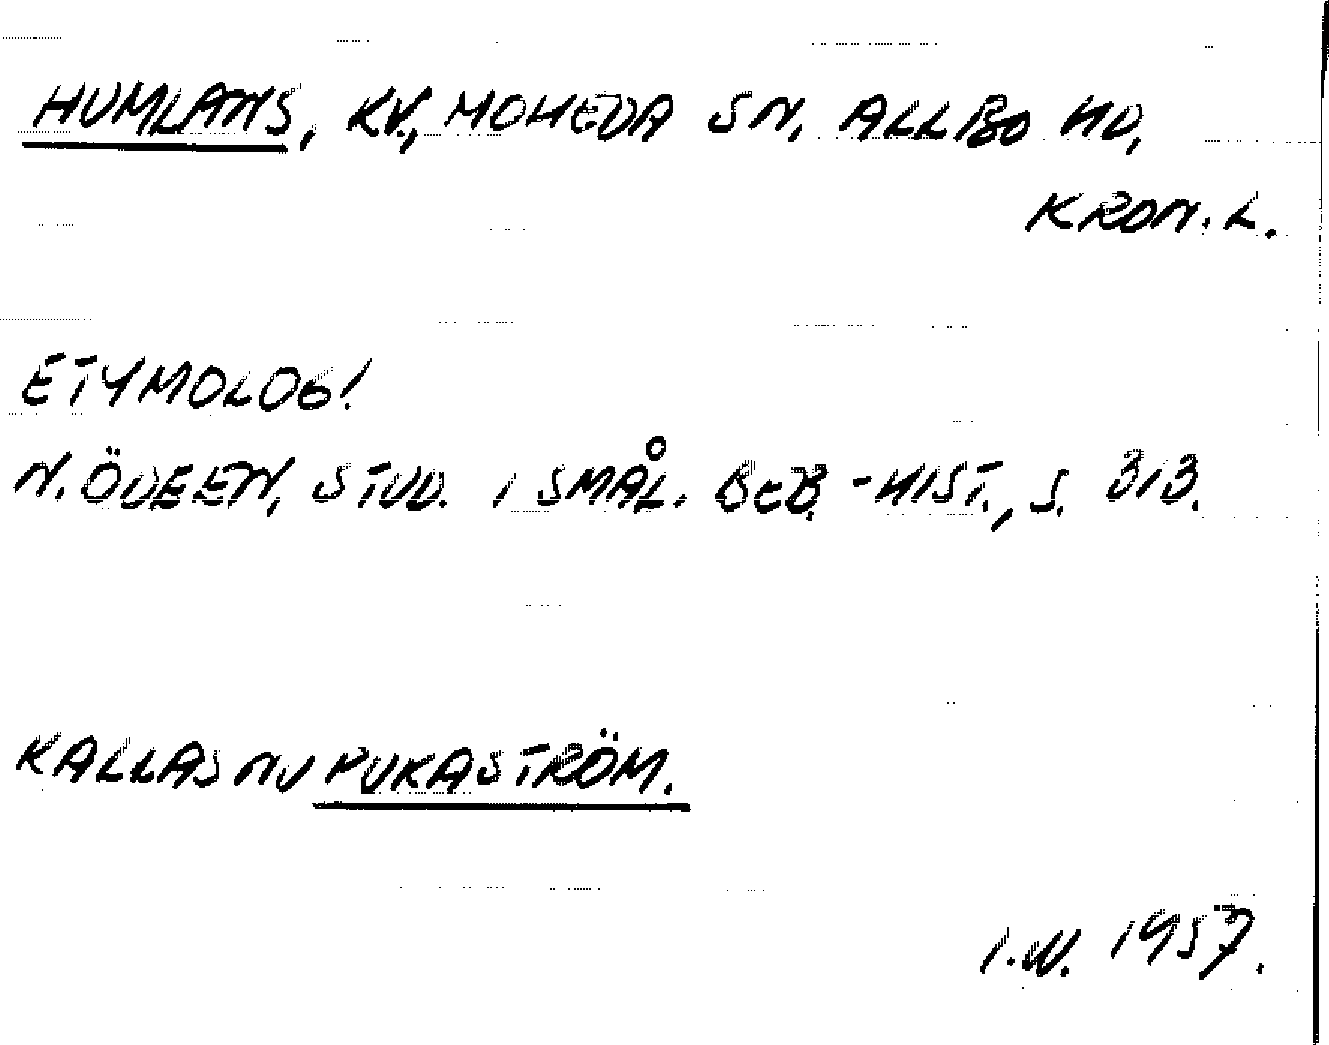 HUMLANS, KV., MOHEDA SN, ALLBO HD,
KRON. L.
ETYMOLOGI
N. ÖDEEN, STUD. I SMÅL. BEB.-HIST., S. 313.
KALLAS NU PUKASTRÖM.
I.W. 1957.